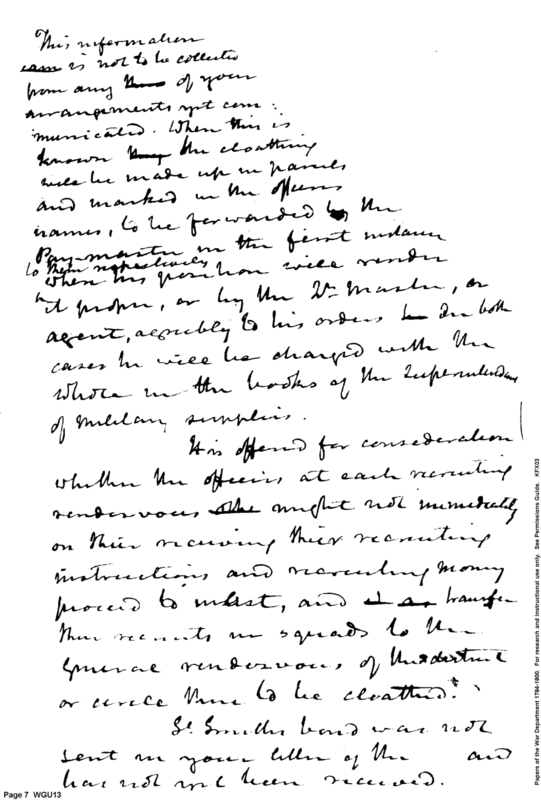 This information
can is not to be collected
from any of your
arrangements yet com:
municated. When this is
known the cloathing
will be made up in parcels
and marked in the officers
names, to be forwarded by the
Pay-master in the first instance
to them respectively
when his position will render
it proper, or by the Qr Master, or
agent, agreably to his orders In both
cases he will be charged with the
whole in the books of the Superintendant
of military supplies.
It is offered for consideration
whether the officers at each recruiting
rendezvous might not immediately
on their receiving their recruiting
instructions and recruiting money
proceed to inlist, and transfer
their recruits in squads to the
general rendezvous of the district
or circle there to be cloathed.
Lt. Smiths bond was not
sent in your letter of the and
has not yet been received.
Page 7 WGU13
Papers of the War Department 1784-1800. For research and instructional use only. See Permissions Guide. KFX03